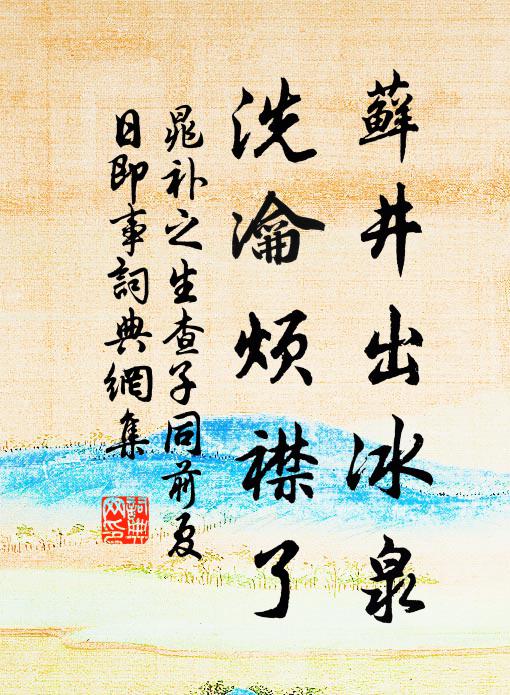 蘚井出冰泉
洗瀹煩襟了
晁补之生查子同前夏
日即事詞典網集